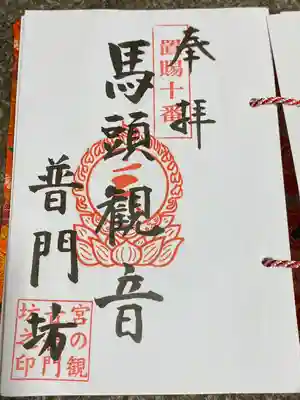 奉拝
置賜十番
馬頭観音
普門坊
宮の観
坊之印